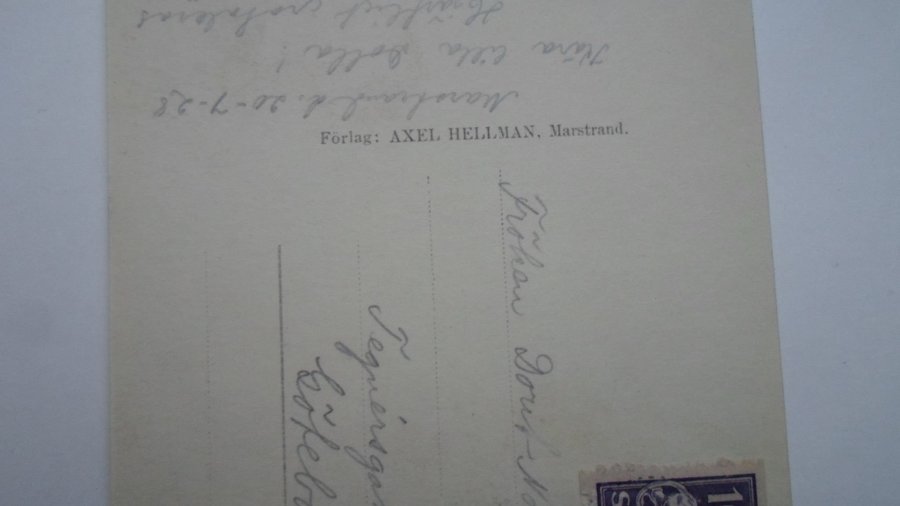 Marstrand d. 20-7-28
Kära lilla Dolla!
Hjärtligt gratuleras
Förlag: AXEL HELLMAN, Marstrand.
Fröken Dorit
Tegnérsga
Götebo